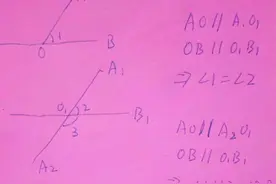 1
O
B
A₁
O₁
2
B₁
3
A₂
AO // A₁O₁
OB // O₁B₁
⇒ ∠1=∠2
AO // A₂O₁
OB // O₁B₁